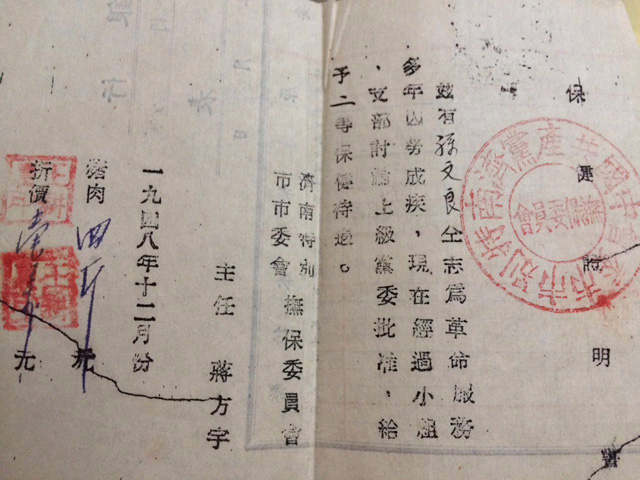 保健證明書
茲有孫文良仝志爲革命服務
多年因勞成疾，現在經過小組
、支部討論上級黨委批准，給
予二等保健待遇。
濟南特別
市市委會
撫保委員會
主任 蔣方宇
一九四八年十二月份
猪肉 四斤 元
折價 元
共產黨濟南特別市市
委員會